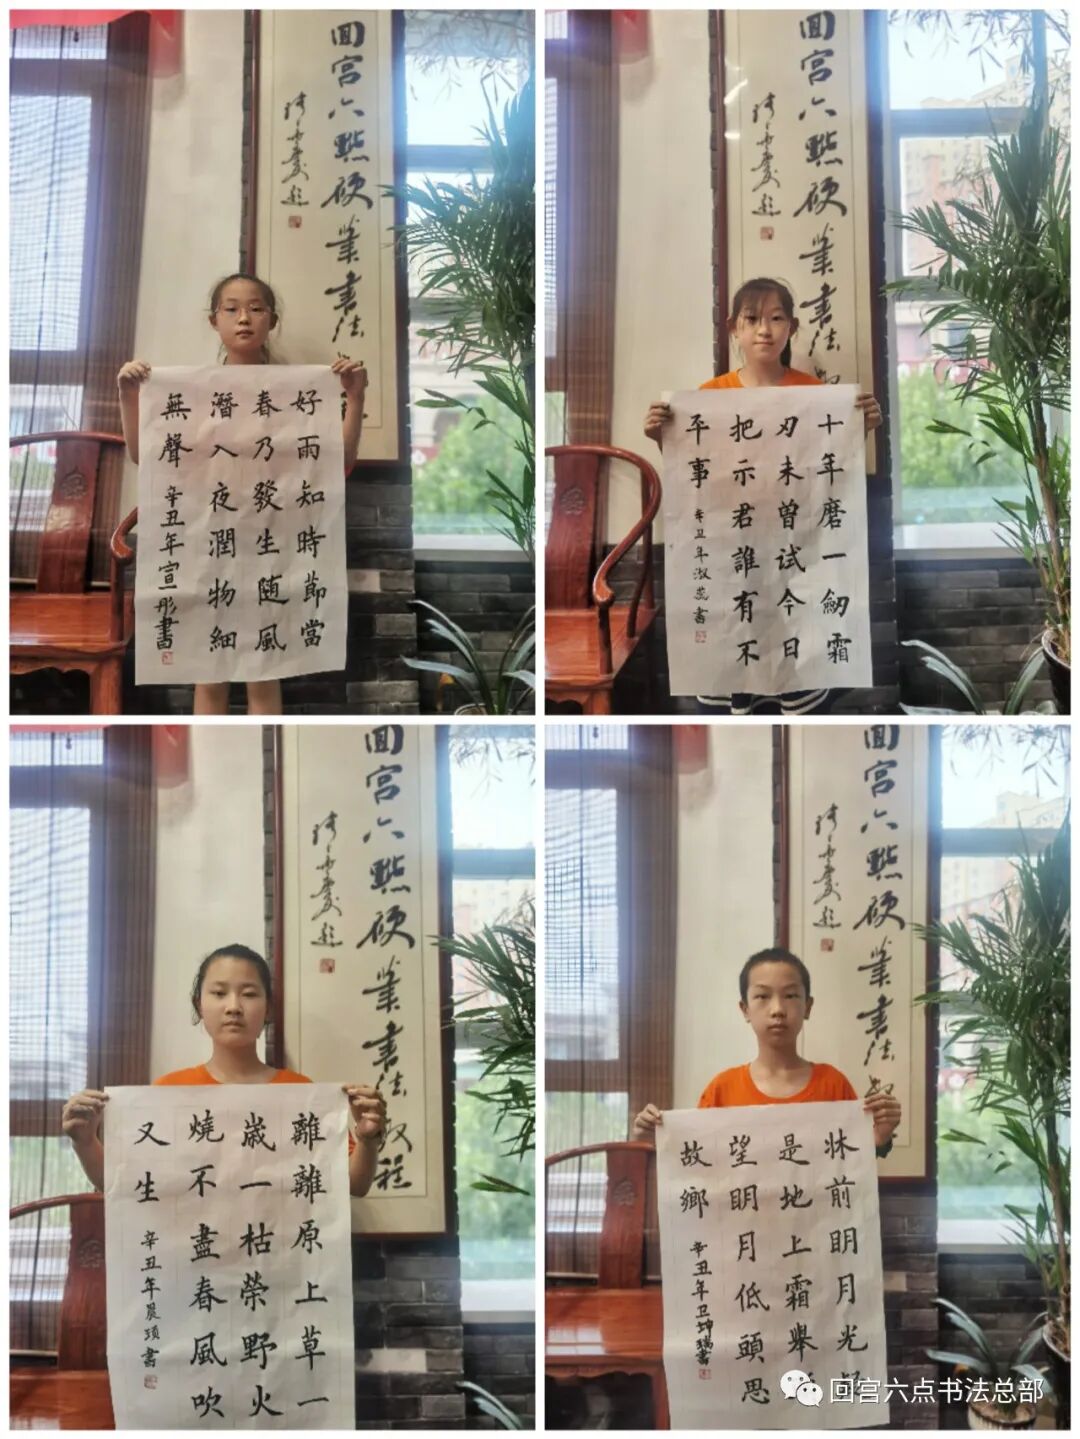 回宫六點硬筆書法
好雨知時節當
春乃發生随風
潛入夜潤物細
無聲
辛丑年宣彤書
回宫六點硬筆書法
十年磨一劒霜
刃未曾試今日
把示君誰有不
平事
辛丑年淑蕊書
回宫六點硬筆書法教程
離離原上草一
歲一枯榮野火
燒不盡春風吹
又生
辛丑年晨頊書
回宫六點硬筆書法
牀前眀月光
是地上霜舉
望眀月低頭思
故鄉
辛丑年卫坤瑞書
回宫六点书法总部